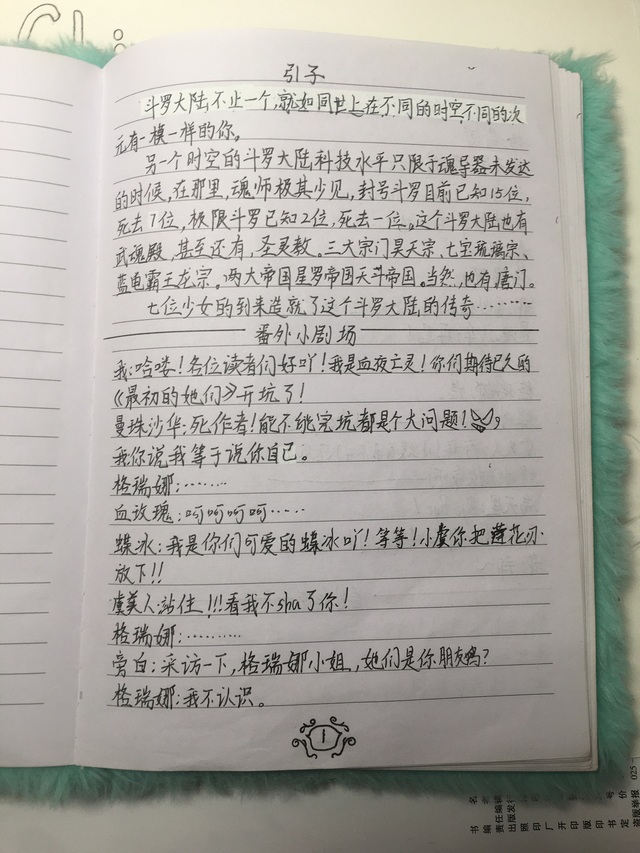 引子
斗罗大陆不止一个,就如同世上在不同的时空不同的次
元有一模一样的你。
另一个时空的斗罗大陆科技水平只限于魂导器未发达
的时候,在那里,魂师极其少见,封号斗罗目前已知15位,
死去7位,极限斗罗已知2位,死去一位。这个斗罗大陆也有
武魂殿,甚至还有,圣灵教。三大宗门昊天宗、七宝琉璃宗、
蓝电霸王龙宗。两大帝国星罗帝国天斗帝国。当然,也有唐门。
七位少女的到来造就了这个斗罗大陆的传奇………
番外小剧场
我:哈喽!各位读者们好吖!我是血夜亡灵!你们期待已久的
《最初的她们》开坑了!
曼珠沙华:死作者!能不能完坑都是个大问题!
我:你说我等于说你自己。
格瑞娜:……
血玫瑰:呵呵呵呵……
蝶冰:我是你们可爱的蝶冰吖!等等!小虞你把莲花刃
放下!!
虞美人:站住!!!看我不sha了你!
格瑞娜:………
旁白:采访一下,格瑞娜小姐,她们是你朋友吗?
格瑞娜:我不认识。
1
Cli
025
书名
责任编辑
出版发行
照
印厂
开
印
版
印号
书价
定
盗版举报